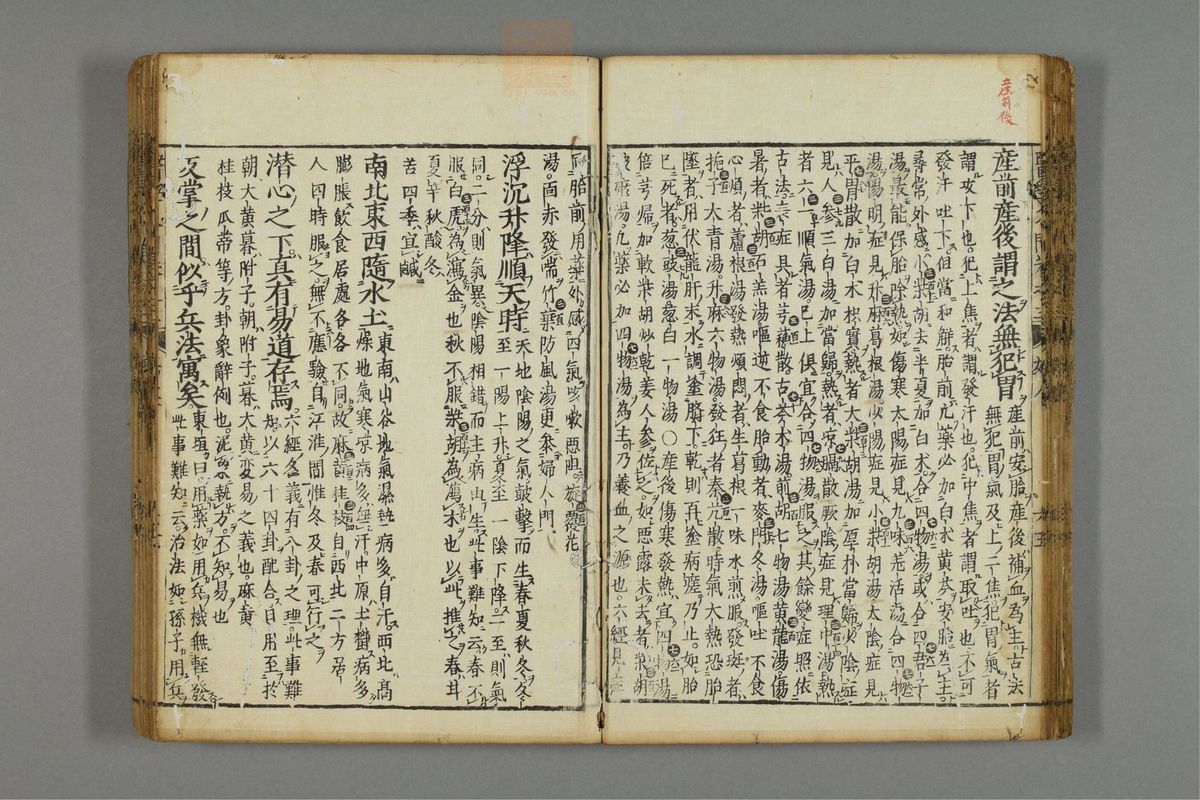 産前後
産前産後謂之法無犯胃
産前安胎産後補血為主古法
無犯胃氣及上二焦犯胃氣者
謂攻下也犯上焦者謂發汗也犯中焦者謂取吐也不可
發汗吐下但當和解胎前凢藥必加白朮黄芩安胎為主
尋常外感小柴胡去半夏加白朮合四物湯或合四君子
湯最能保胎除熱如傷寒太陽症見九味羌活湯合四物
湯陽明症見升麻葛根湯少陽症見小柴胡湯太陰症見
平胃散加白朮枳實熱者大柴胡湯加厚朴當歸少陰症
見人參三白湯加當歸熱者凉膈散厥陰症見理中湯熱
者六一順氣湯已上俱宜合四物湯服之其餘變症照依
古法
暑者柴胡石羔湯嘔逆不食胎動者麥門冬湯嘔吐不食
心煩者蘆根湯發熱煩悶者生葛根一味水煎服發斑者
梔子大青湯升麻六物湯發狂者
時氣大熱恐胎
墜者用伏龍肝末水調塗臍下乾則再塗病瘥乃止如胎
已死者
葱白一物湯○産後傷寒發熱宜四物湯
倍芎歸加軟柴胡炒乾姜人參佐之如惡露未去者
麻湯凢藥必加四物湯為主乃養血之源也六經見症
同胎前用藥外感四氣咳嗽惡阻旋覆花
湯面赤發喘竹葉防風湯更叅婦人門
浮沉升降順天時
天地陰陽之氣鼓擊而生春夏秋冬冬
至一陽上升夏至一陰下降二至則氣
同二分則氣異陰陽相錯而主病由生此事難知云春不
服白虎為瀉金也秋不服柴胡為瀉木也以此推之春苷
夏辛秋酸冬
苦四季宜鹹
南北東西隨水土
東南山谷地氣濕熱病多自汗西北髙
燥地氣寒凉病多無汗中原土欝病多
膨脹飲食居處各各不同故麻黄桂枝自西北二方居
人四時服之無不應驗自江淮間惟冬及春可行之
潜心之下真有易道存焉
六經各義有八卦之理此事難
知以六十四卦配合日用至於
朝大黄暮附子朝附子暮大黄変易之義也麻黄
桂枝瓜蒂等方卦象辭例也泥
執方不知易也
反掌之間似乎兵法寓矣
東垣曰用藥如用兵機無輕發
此事難知云治法如孫子用兵